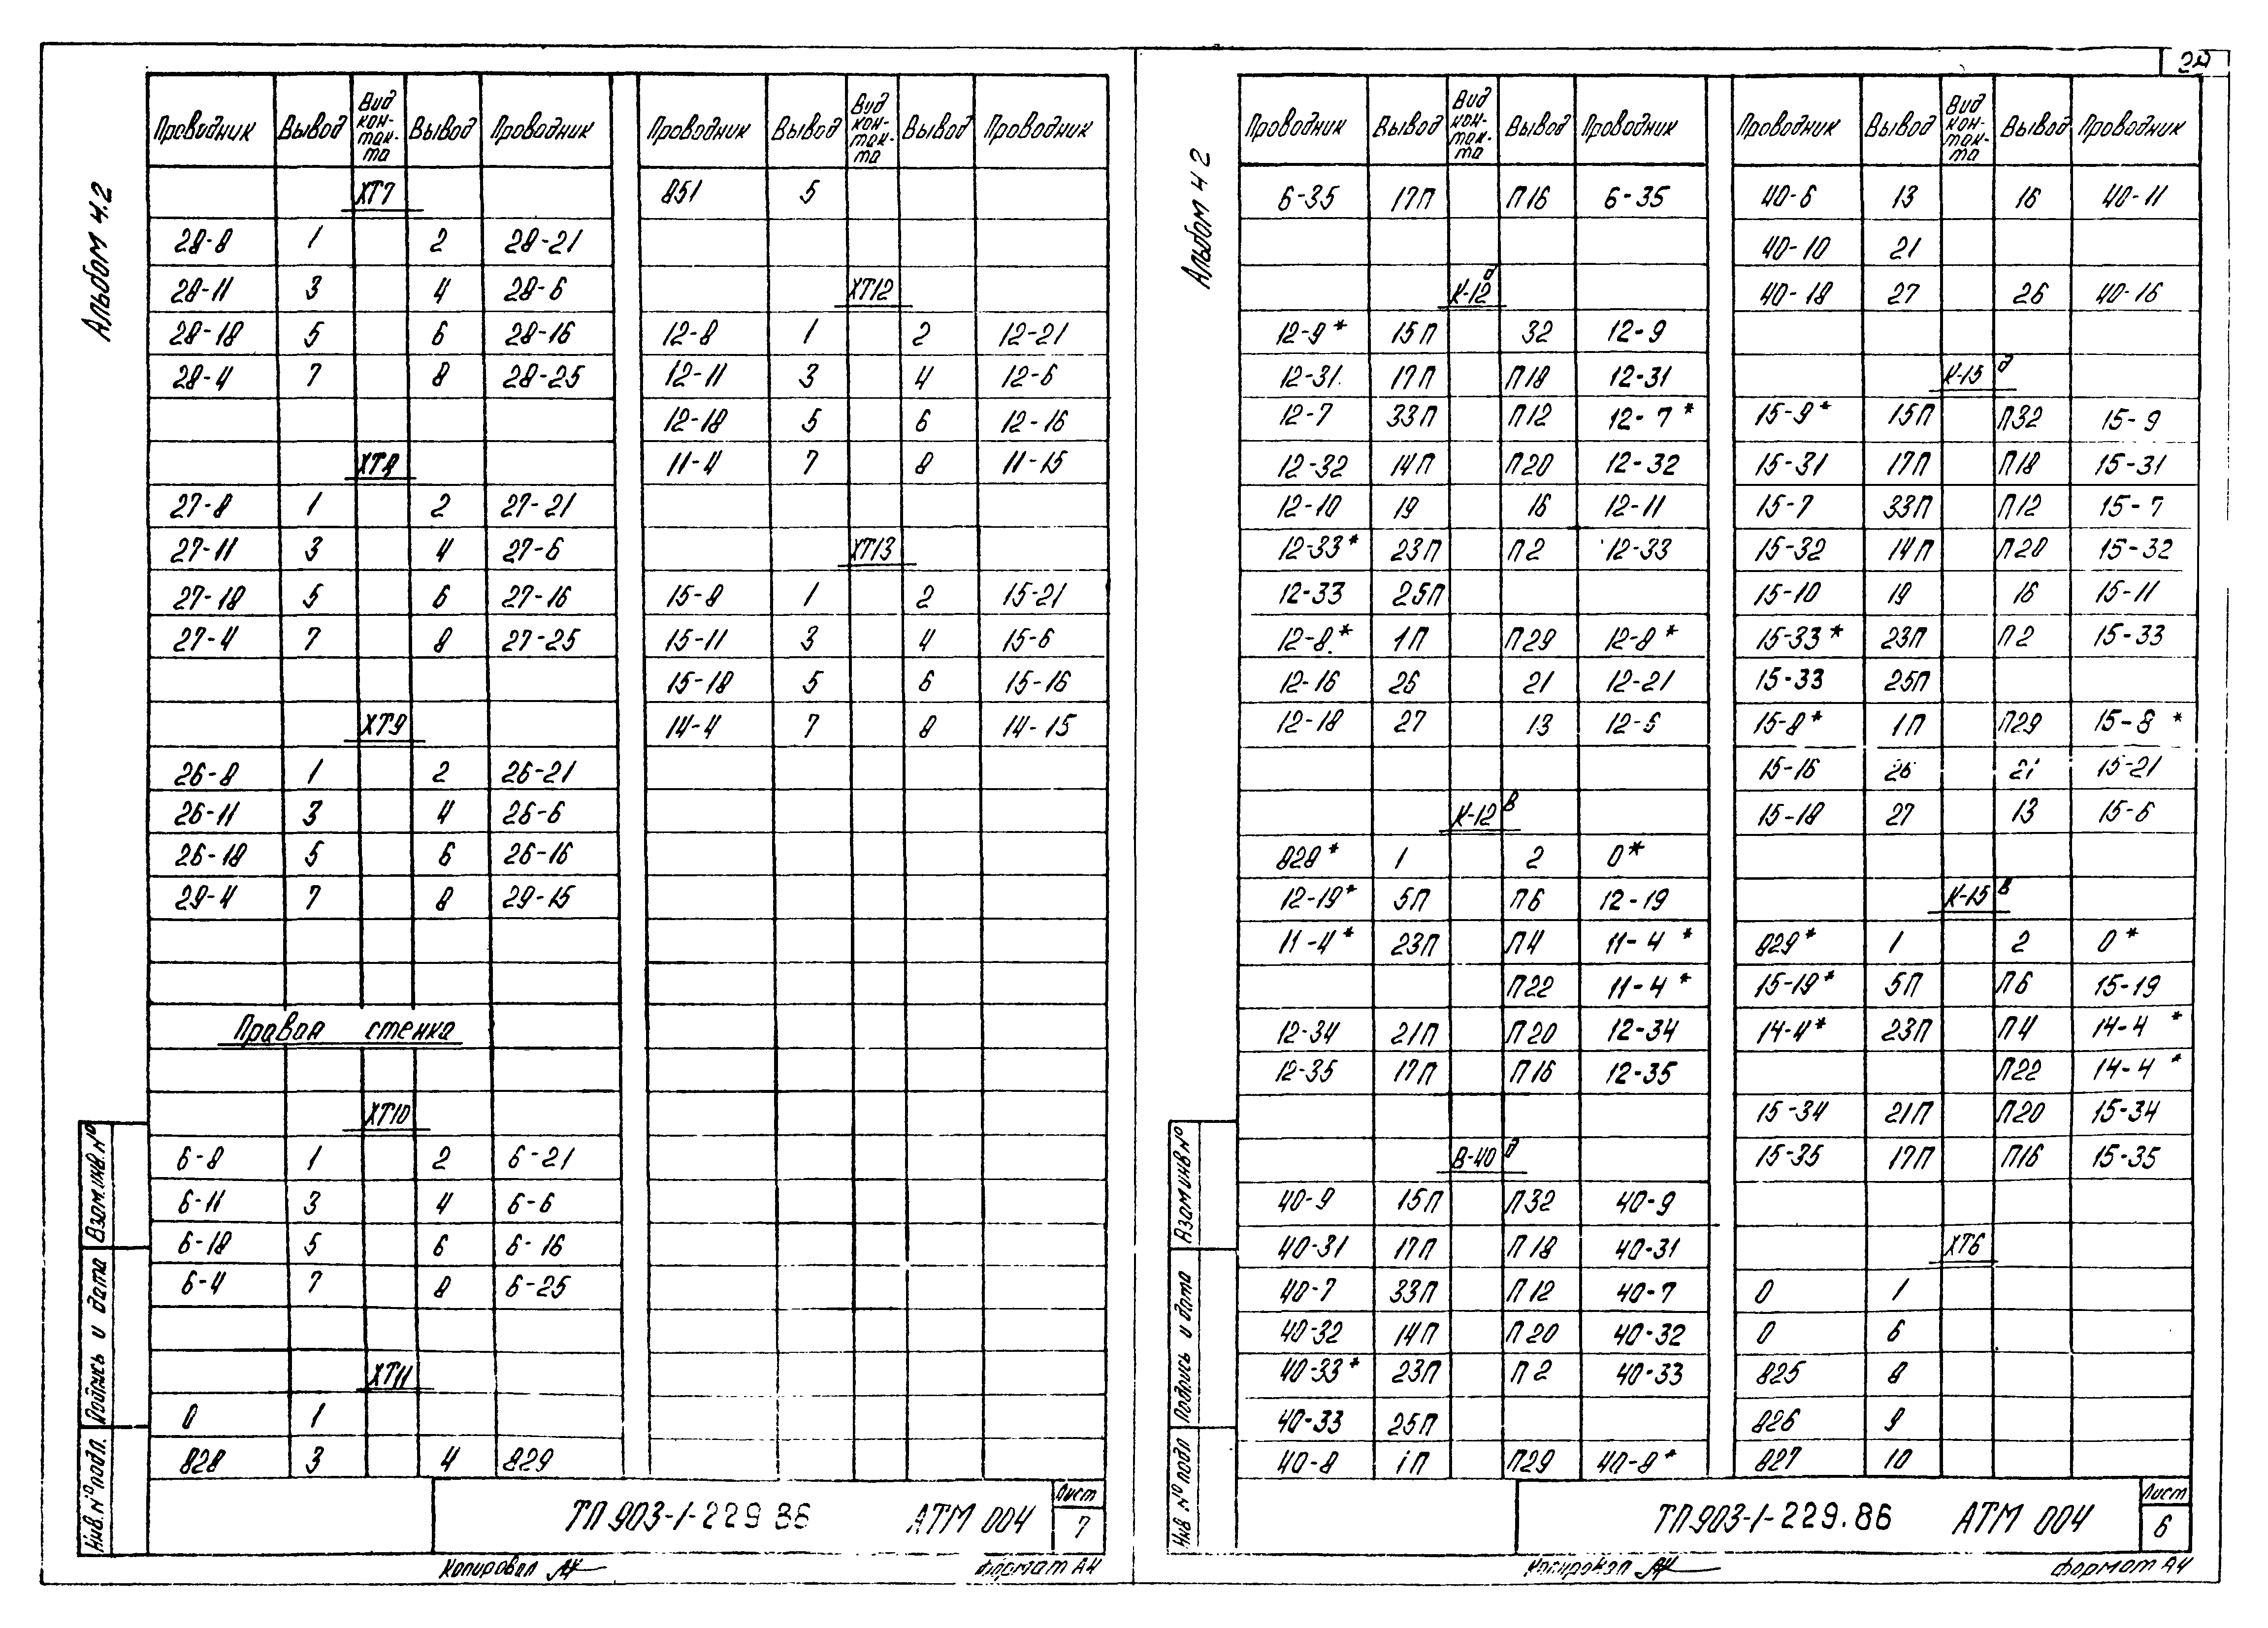 Альбом 4.2
Проводник Вывод Вид кон-так-та Вывод Проводник
ХТ7
28-8 1 2 28-21
28-11 3 4 28-6
28-18 5 6 28-16
28-4 7 8 28-25
ХТ8
27-8 1 2 27-21
27-11 3 4 27-6
27-18 5 6 27-16
27-4 7 8 27-25
ХТ9
26-8 1 2 26-21
26-11 3 4 26-6
26-18 5 6 26-16
29-4 7 8 29-15
Правая стенка
ХТ10
6-8 1 2 6-21
6-11 3 4 6-6
6-18 5 6 6-16
6-4 7 8 6-25
ХТ11
0 1
828 3 4 829
Проводник Вывод Вид кон-так-та Вывод Проводник
851 5
ХТ12
12-8 1 2 12-21
12-11 3 4 12-6
12-18 5 6 12-16
11-4 7 8 11-15
ХТ13
15-8 1 2 15-21
15-11 3 4 15-6
15-18 5 6 15-16
14-4 7 8 14-15
Инв.№подл. Подпись и дата Взам.инв.№
ТП 903-1-229 86 АТМ 004
Лист
7
Копировал
Формат А4
Альбом 4 2
Проводник Вывод Вид кон-так-та Вывод Проводник
6-35 17П П16 6-35
К-12 д
12-9* 15П 32 12-9
12-31 17П П18 12-31
12-7 33П П12 12-7*
12-32 14П П20 12-32
12-10 19 16 12-11
12-33* 23П П2 12-33
12-33 25П
12-8* 1П П29 12-8*
12-16 26 21 12-21
12-18 27 13 12-6
К-12 В
828* 1 2 0*
12-19* 5П П6 12-19
11-4* 23П П4 11-4*
П22 11-4*
12-34 21П П20 12-34
12-35 17П П16 12-35
В-40 д
40-9 15П П32 40-9
40-31 17П П18 40-31
40-7 33П П12 40-7
40-32 14П П20 40-32
40-33* 23П П2 40-33
40-33 25П
40-8 1П П29 40-8*
Проводник Вывод Вид кон-так-та Вывод Проводник
40-6 13 16 40-11
40-10 21
40-18 27 26 40-16
К-15 д
15-9* 15П П32 15-9
15-31 17П П18 15-31
15-7 33П П12 15-7
15-32 14П П20 15-32
15-10 19 16 15-11
15-33* 23П П2 15-33
15-33 25П
15-8* 1П П29 15-8*
15-16 26 21 15-21
15-18 27 13 15-6
К-15 В
829* 1 2 0*
15-19* 5П П6 15-19
14-4* 23П П4 14-4*
П22 14-4*
15-34 21П П20 15-34
15-35 17П П16 15-35
ХТ6
0 1
0 6
825 8
826 9
827 10
Инв №подл Подпись и дата Взам инв №
ТП 903-1-229.86 АТМ 004
Лист
6
Копировал
Формат А4